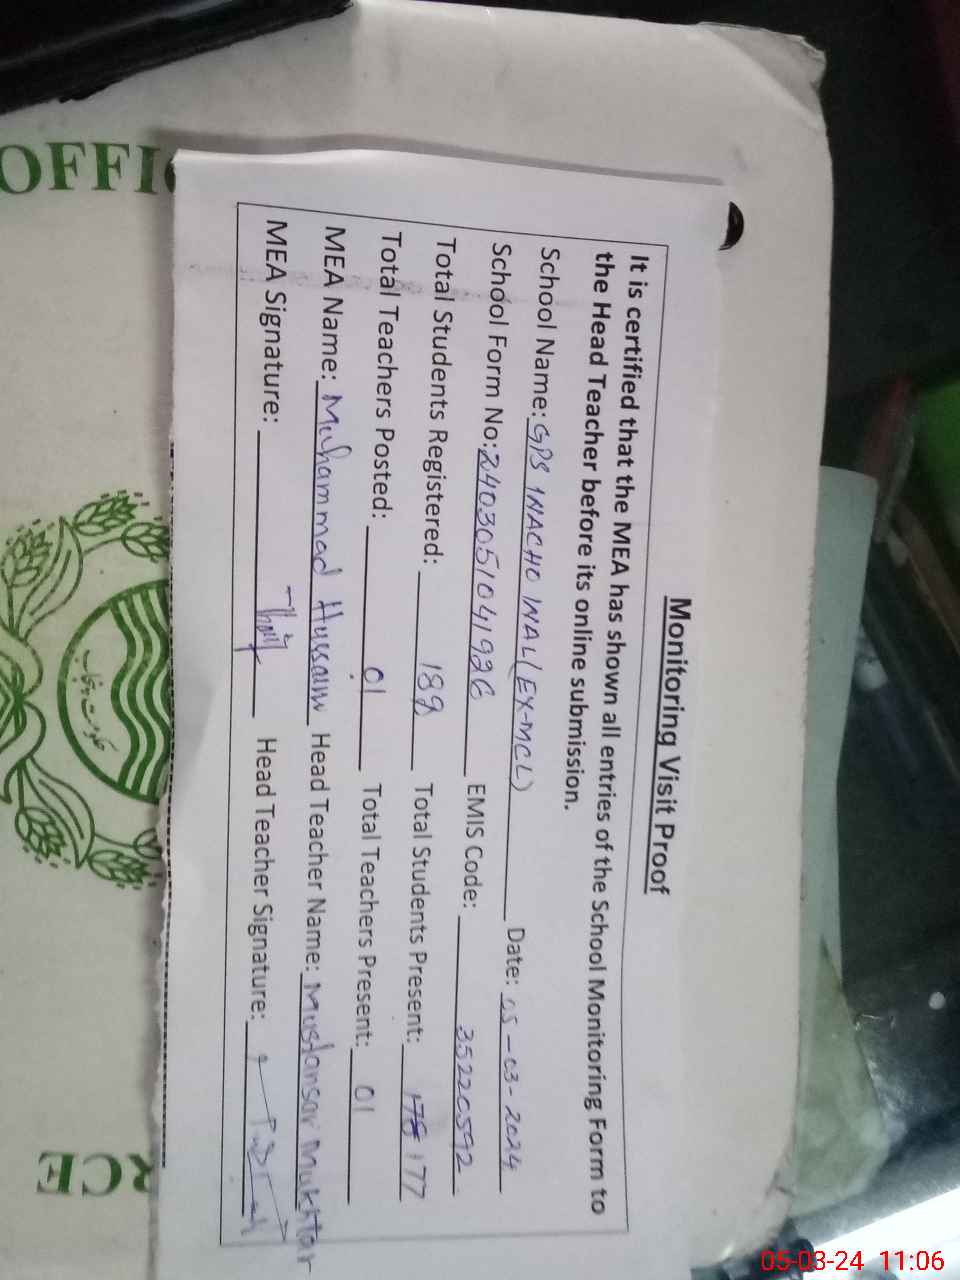 Monitoring Visit Proof
It is certified that the MEA has shown all entries of the School Monitoring Form to
the Head Teacher before its online submission.
School Name: GPS INACHO WAL (EX-MCL) Date: 05-03-2024
School Form No: 2403051041926 EMIS Code: 35220592
Total Students Registered: 189 Total Students Present: 177
Total Teachers Posted: 01 Total Teachers Present: 01
MEA Name: Muhammad Hussain Head Teacher Name: Mustansar Mukhtar
MEA Signature: Head Teacher Signature:
OFFI
RCE
حکومت پنجاب
05-03-24 11:06